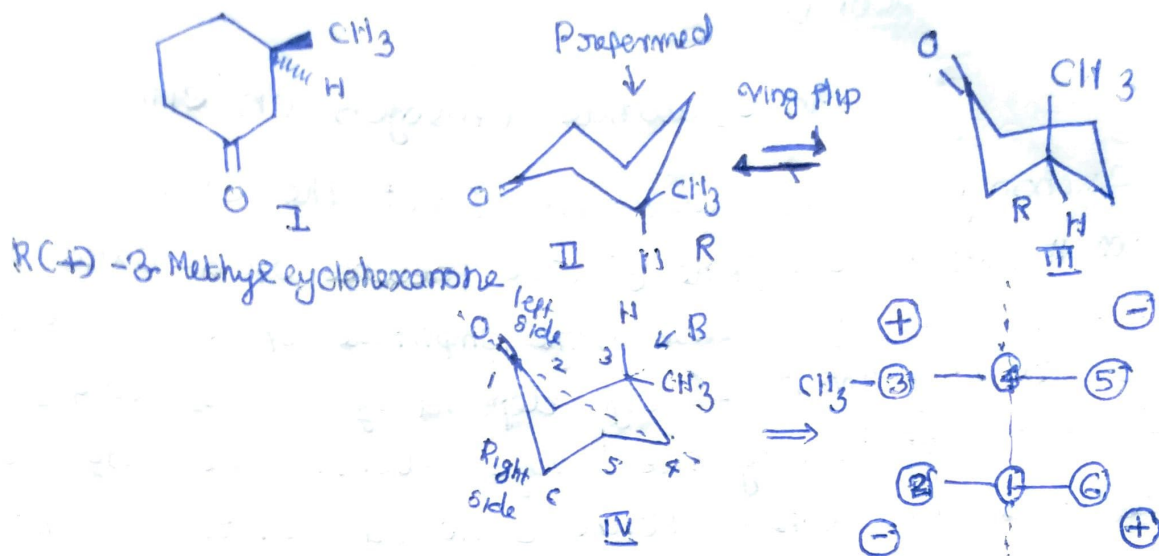 CH3
H
O
I
R(+) -3-Methyl cyclohexanone
Preferred
O
CH3
H
R
II
ring flip
O
CH3
R
H
III
left
side
O
H
B
1
2
3
CH3
Right
side
6
5
4
IV
+
-
CH3
3
4
5
2
1
6
-
+